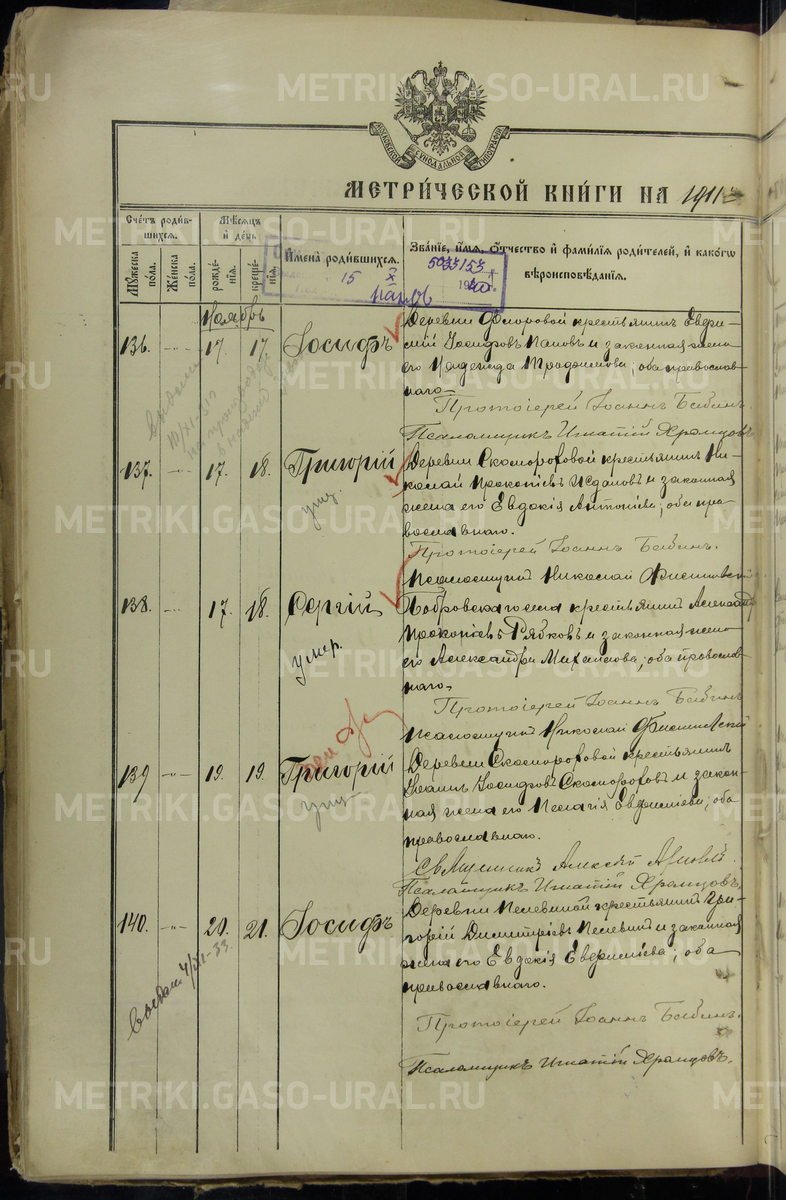 МОСКОВСКОЙ СѴНОДАЛЬНОЙ ТИПОГРАФІИ
МЕТРИ́ЧЕСКОЙ КНИ́ГИ НА 1911
Сче́тъ роди́в-
шихся.
Мѣ́сяцъ
и҆ де́нь
Му́жеска
по́ла.
Же́нска
по́ла.
рожде́-
нія.
креще́-
нія.
И҆мена̀ роди́вшихся.
Зва́ніе, и҆́мя, ѻ҆́тчество и҆ фами́лїя роди́телей, и҆ како́гѡ
вѣроисповѣ́данія.
15 X
503153
Паповъ
Ноябрь
136. -"- 17. 17. Іосифъ
Деревни Флоровой крестьянинъ Евфи-
мій Іосифовъ Паповъ и законная жена
его Надежда Трофимова, оба православ-
наго.
Протоіерей Іоаннъ Бабинъ.
Псаломщикъ Игнатій Храмцовъ
Выданы
137. -"- 17. 18. Григорій
умер.
Деревни Скомороховой крестьянинъ Ни-
колай Прокопіевъ и законная
жена его Евдокія Антоніева; оба пра-
вославнаго.
Протоіерей Іоаннъ Бабинъ.
Псаломщикъ Николай
138. -"- 17. 18. Сергій
умер.
Бобровскаго села крестьянинъ Александръ
Прокопіевъ Рябковъ и законная жена
его Александра Михайлова; оба православ-
наго.
Протоіерей Іоаннъ Бабинъ
Псаломщикъ Николай
139 -"- 19. 19. Григорій
умер
Деревни Скомороховой крестьянинъ
Іоаннъ Іосифовъ Скомороховъ и закон-
ная жена его Пелагія Евфиміева; оба
православнаго.
Священникъ Алексѣй
Псаломщикъ Игнатій Храмцовъ.
140. -"- 20. 21. Іосифъ
Деревни Пелевиной крестьянинъ Гри-
горій Димитріевъ Пелевинъ и законная
жена его Евдокія Евфиміева; оба
православнаго.
Протоіерей Іоаннъ Бабинъ.
Псаломщикъ Игнатій Храмцовъ.
METRIKI.GASO-URAL.RU